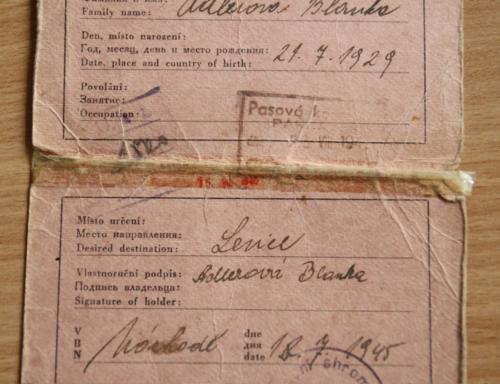 Family name: Adlerová Blanka
Den, místo narození:
Год, месяц, день и место рождения:
Date, place and country of birth: 29. 7. 1929
Povolání:
Занятие:
Occupation:
Pasová
Místo určení:
Место направления:
Desired destination: Levice
Vlastnoruční podpis: Adlerová Blanka
Подпись владельца:
Signature of holder:
V dne
В дня
N date 18. 7. 1945